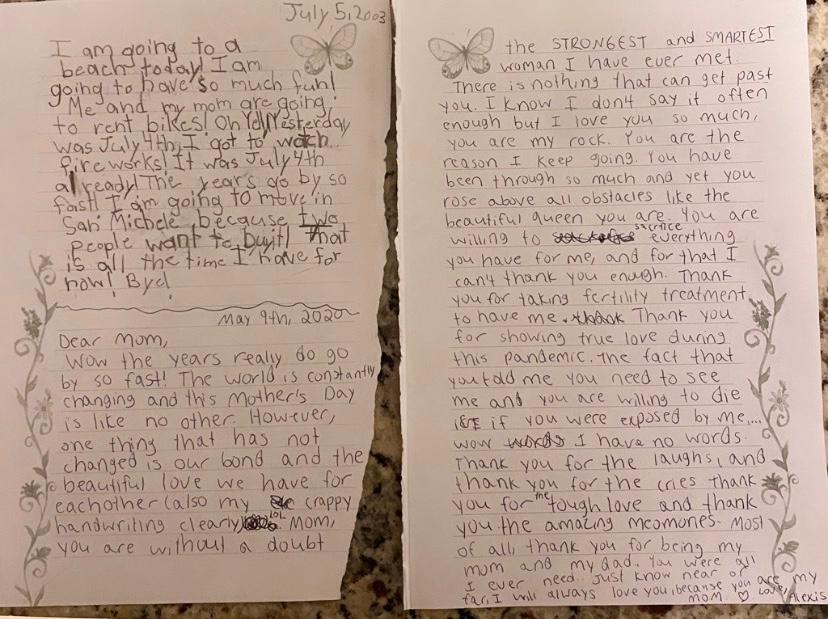 July 5, 2003
I am going to a
beach today! I am
going to have so much fun!
Me and my mom are going
to rent bikes! Oh Ya! Yesterday
was July 4th, I got to watch
fireworks! It was July 4th
already! The years go by so
fast! I am going to move in
San Michele because two
people want to buy it! That
is all the time I have for
now! Bye!
May 9th, 2020
Dear Mom,
Wow the years really do go
by so fast! The world is constantly
changing and this Mother's Day
is like no other. However,
one thing that has not
changed is our bond and the
beautiful love we have for
eachother (also my crappy
handwriting clearly) LOL. Mom,
you are without a doubt
the STRONGEST and SMARTEST
woman I have ever met.
There is nothing that can get past
you. I know I don't say it often
enough but I love you so much,
you are my rock. You are the
reason I keep going. You have
been through so much and yet you
rose above all obstacles like the
beautiful queen you are. You are
willing to sacrifice everything
you have for me, and for that I
can't thank you enough. Thank
you for taking fertility treatment
to have me. Thank you
for showing true love during
this pandemic. The fact that
you told me you need to see
me and you are willing to die
if you were exposed by me,...
wow I have no words.
Thank you for the laughs, and
thank you for the cries thank
you for the tough love and thank
you the amazing meomories. Most
of all, thank you for being my
mom and my dad. You were all
I ever need. Just know near or
far, I will always love you, because you are my
MOM ♡ Love, Alexis